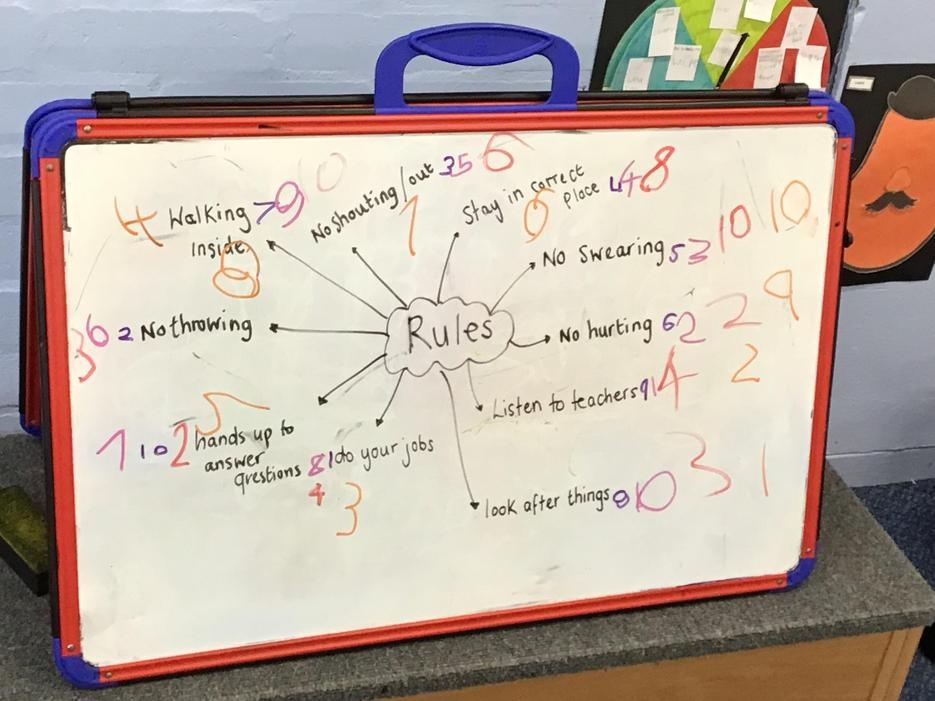 Rules
No shouting/out 3 5 6
7
Stay in correct
Place 4 4 8
6
4 Walking 7 9 0
Inside
8
No Swearing 5 3 10 10
No hurting 6 2 2 9
3 6 2 No throwing
Listen to teachers 9 1 4 2
5
1 10 2 hands up to
answer
questions
8 1 do your jobs
4 3
look after things 8 10 3 1